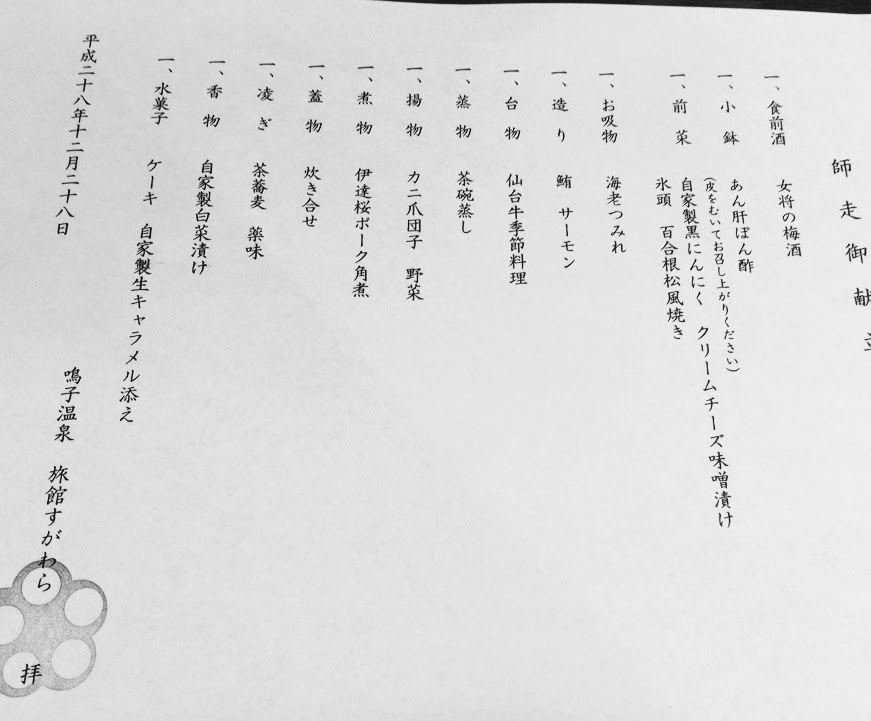 師走御献立
一、食前酒　女将の梅酒
一、小鉢　あん肝ぽん酢
（皮をむいてお召し上がりください）
一、前菜　自家製黒にんにく　クリームチーズ味噌漬け
氷頭　百合根松風焼き
一、お吸物　海老つみれ
一、造り　鮪　サーモン
一、台物　仙台牛季節料理
一、蒸物　茶碗蒸し
一、揚物　カニ爪団子　野菜
一、煮物　伊達桜ポーク角煮
一、蓋物　炊き合せ
一、凌ぎ　茶蕎麦　薬味
一、香物　自家製白菜漬け
一、水菓子　ケーキ　自家製生キャラメル添え
平成二十八年十二月二十八日
鳴子温泉　旅館すがわら　拝